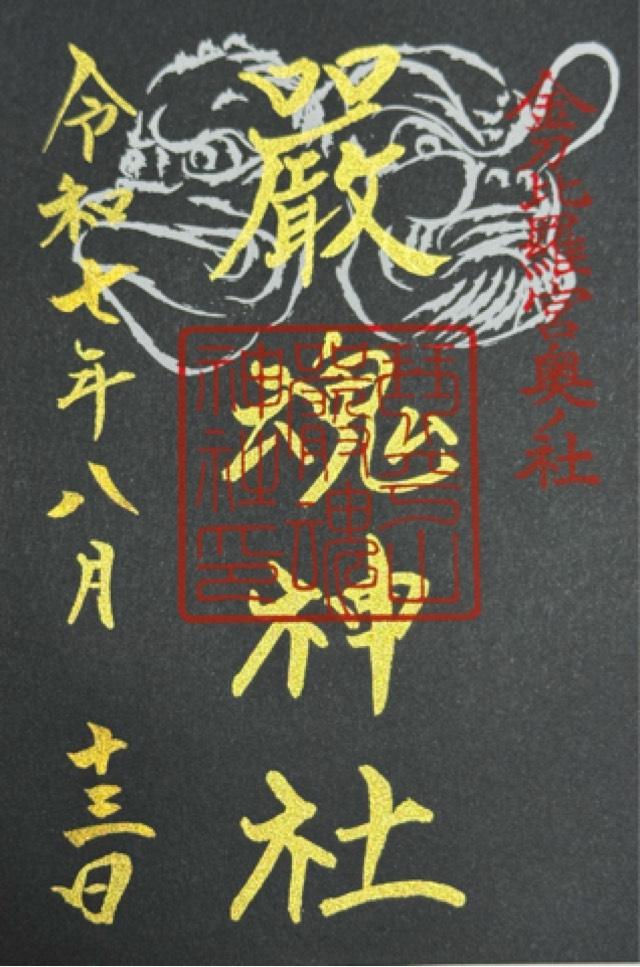 金刀比羅宮奥ノ社
嚴魂神社
琴平山
嚴魂
神社印
令和七年八月 十三日